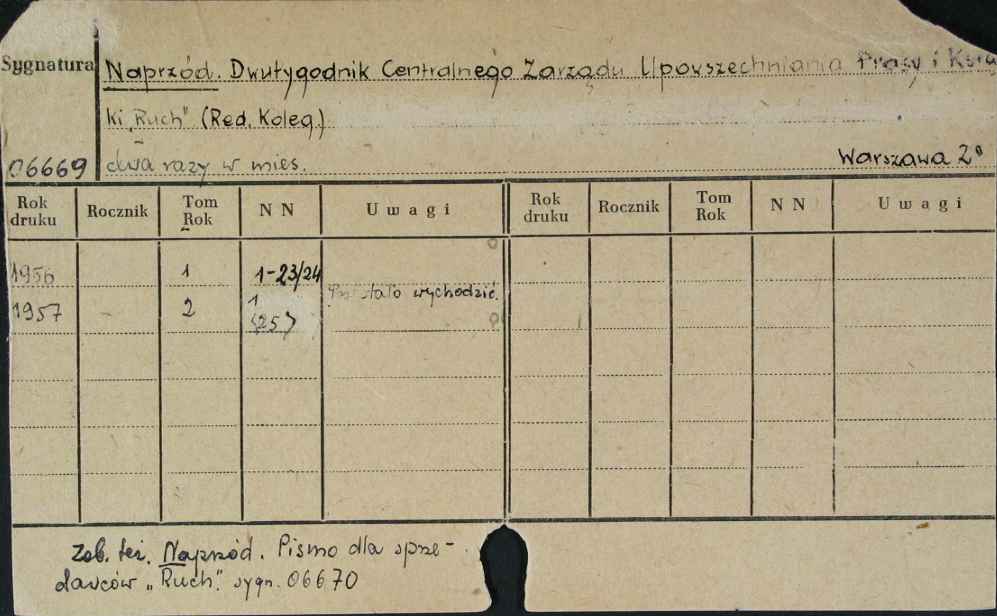 Sygnatura Naprzód. Dwutygodnik Centralnego Zarządu Upowszechniania Prasy i Książ
ki „Ruch" (Red. Koleg.)
06669 dwa razy w mies. Warszawa 2°
Rok druku Rocznik Tom Rok N N Uwagi Rok druku Rocznik Tom Rok N N Uwagi
1956 1 1-23/24
Przestało wychodzić.
1957 - 2 1
(25)
Zob. też. Naprzód. Pismo dla sprze-
dawców „Ruch". sygn. 06670